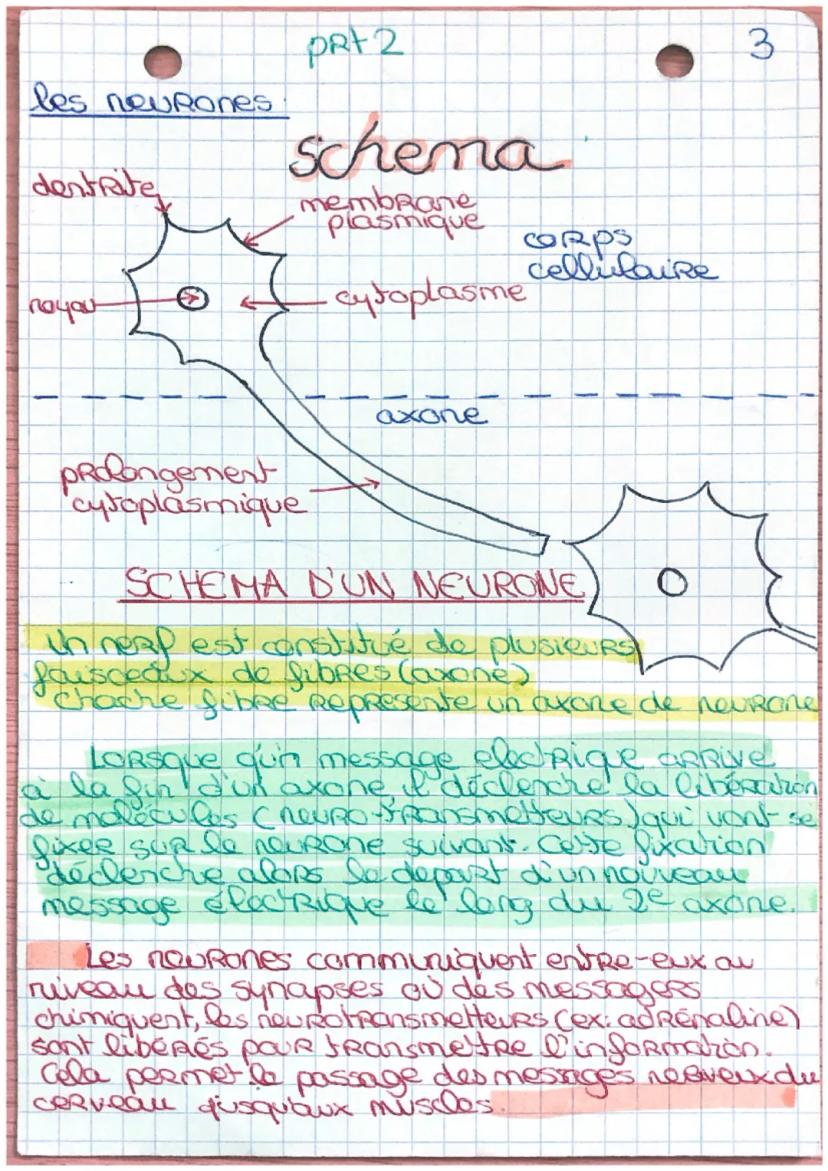 prt 2
3
les neurones:
schema
dentrite
membrane
plasmique
corps
cellulaire
noyau
cytoplasme
axone
prolongement
cytoplasmique
SCHEMA D'UN NEURONE
Un nerf est constitué de plusieurs
faisceaux de fibres (axone)
chache fibre représente un axone de neurone
Lorsque qu'in message electrique arrive
à la fin d'un axone il déclenche la libération
de molécules (neuro-transmetteurs) qui vont se
fixer sur le neurone suivant. Cette fixation
déclenche alors le depart d'un nouveau
message électrique le long du 2e axone.
Les neurones communiquent entre-eux au
niveau des synapses où des messagers
chimiquent, les neurotransmetteurs (ex: adrénaline)
sont libérés pour transmettre l'information.
Cela permet le passage des messages nerveux du
cerveau jusqu'aux muscles.